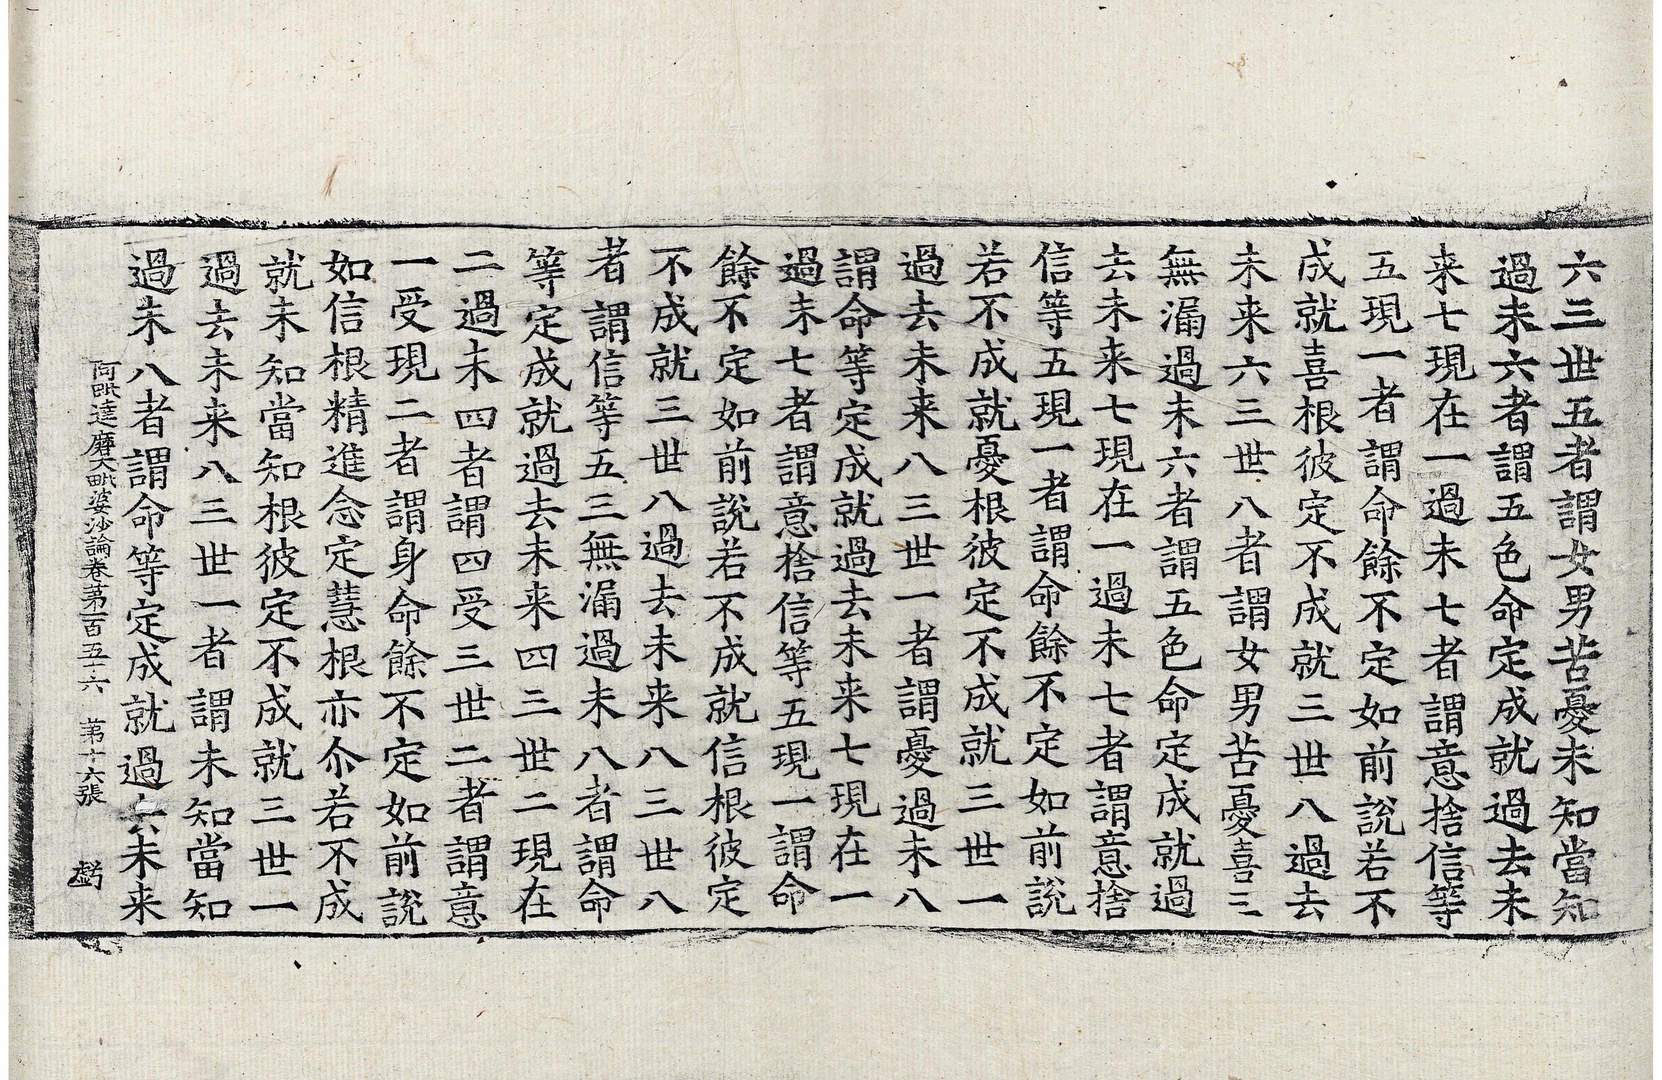 六三世五者謂女男苦憂未知當知
過未六者謂五色命定成就過去未
来七現在一過未七者謂意捨信等
五現一者謂命餘不定如前說若不
成就喜根彼定不成就三世八過去
未来六三世八者謂女男苦憂喜三
無漏過未六者謂五色命定成就過
去未来七現在一過未七者謂意捨
信等五現一者謂命餘不定如前說
若不成就憂根彼定不成就三世一
過去未来八三世一者謂憂過未八
謂命等定成就過去未来七現在一
過未七者謂意捨信等五現一謂命
餘不定如前說若不成就信根彼定
不成就三世八過去未来八三世八
者謂信等五三無漏過未八者謂命
等定成就過去未来四三世二現在
二過未四者謂四受三世二者謂意
一受現二者謂身命餘不定如前說
如信根精進念定慧根亦尒若不成
就未知當知根彼定不成就三世一
過去未来八三世一者謂未知當知
過未八者謂命等定成就過去未来
阿毗達磨大毗婆沙論卷苐一百五十六 苐十六張 虧